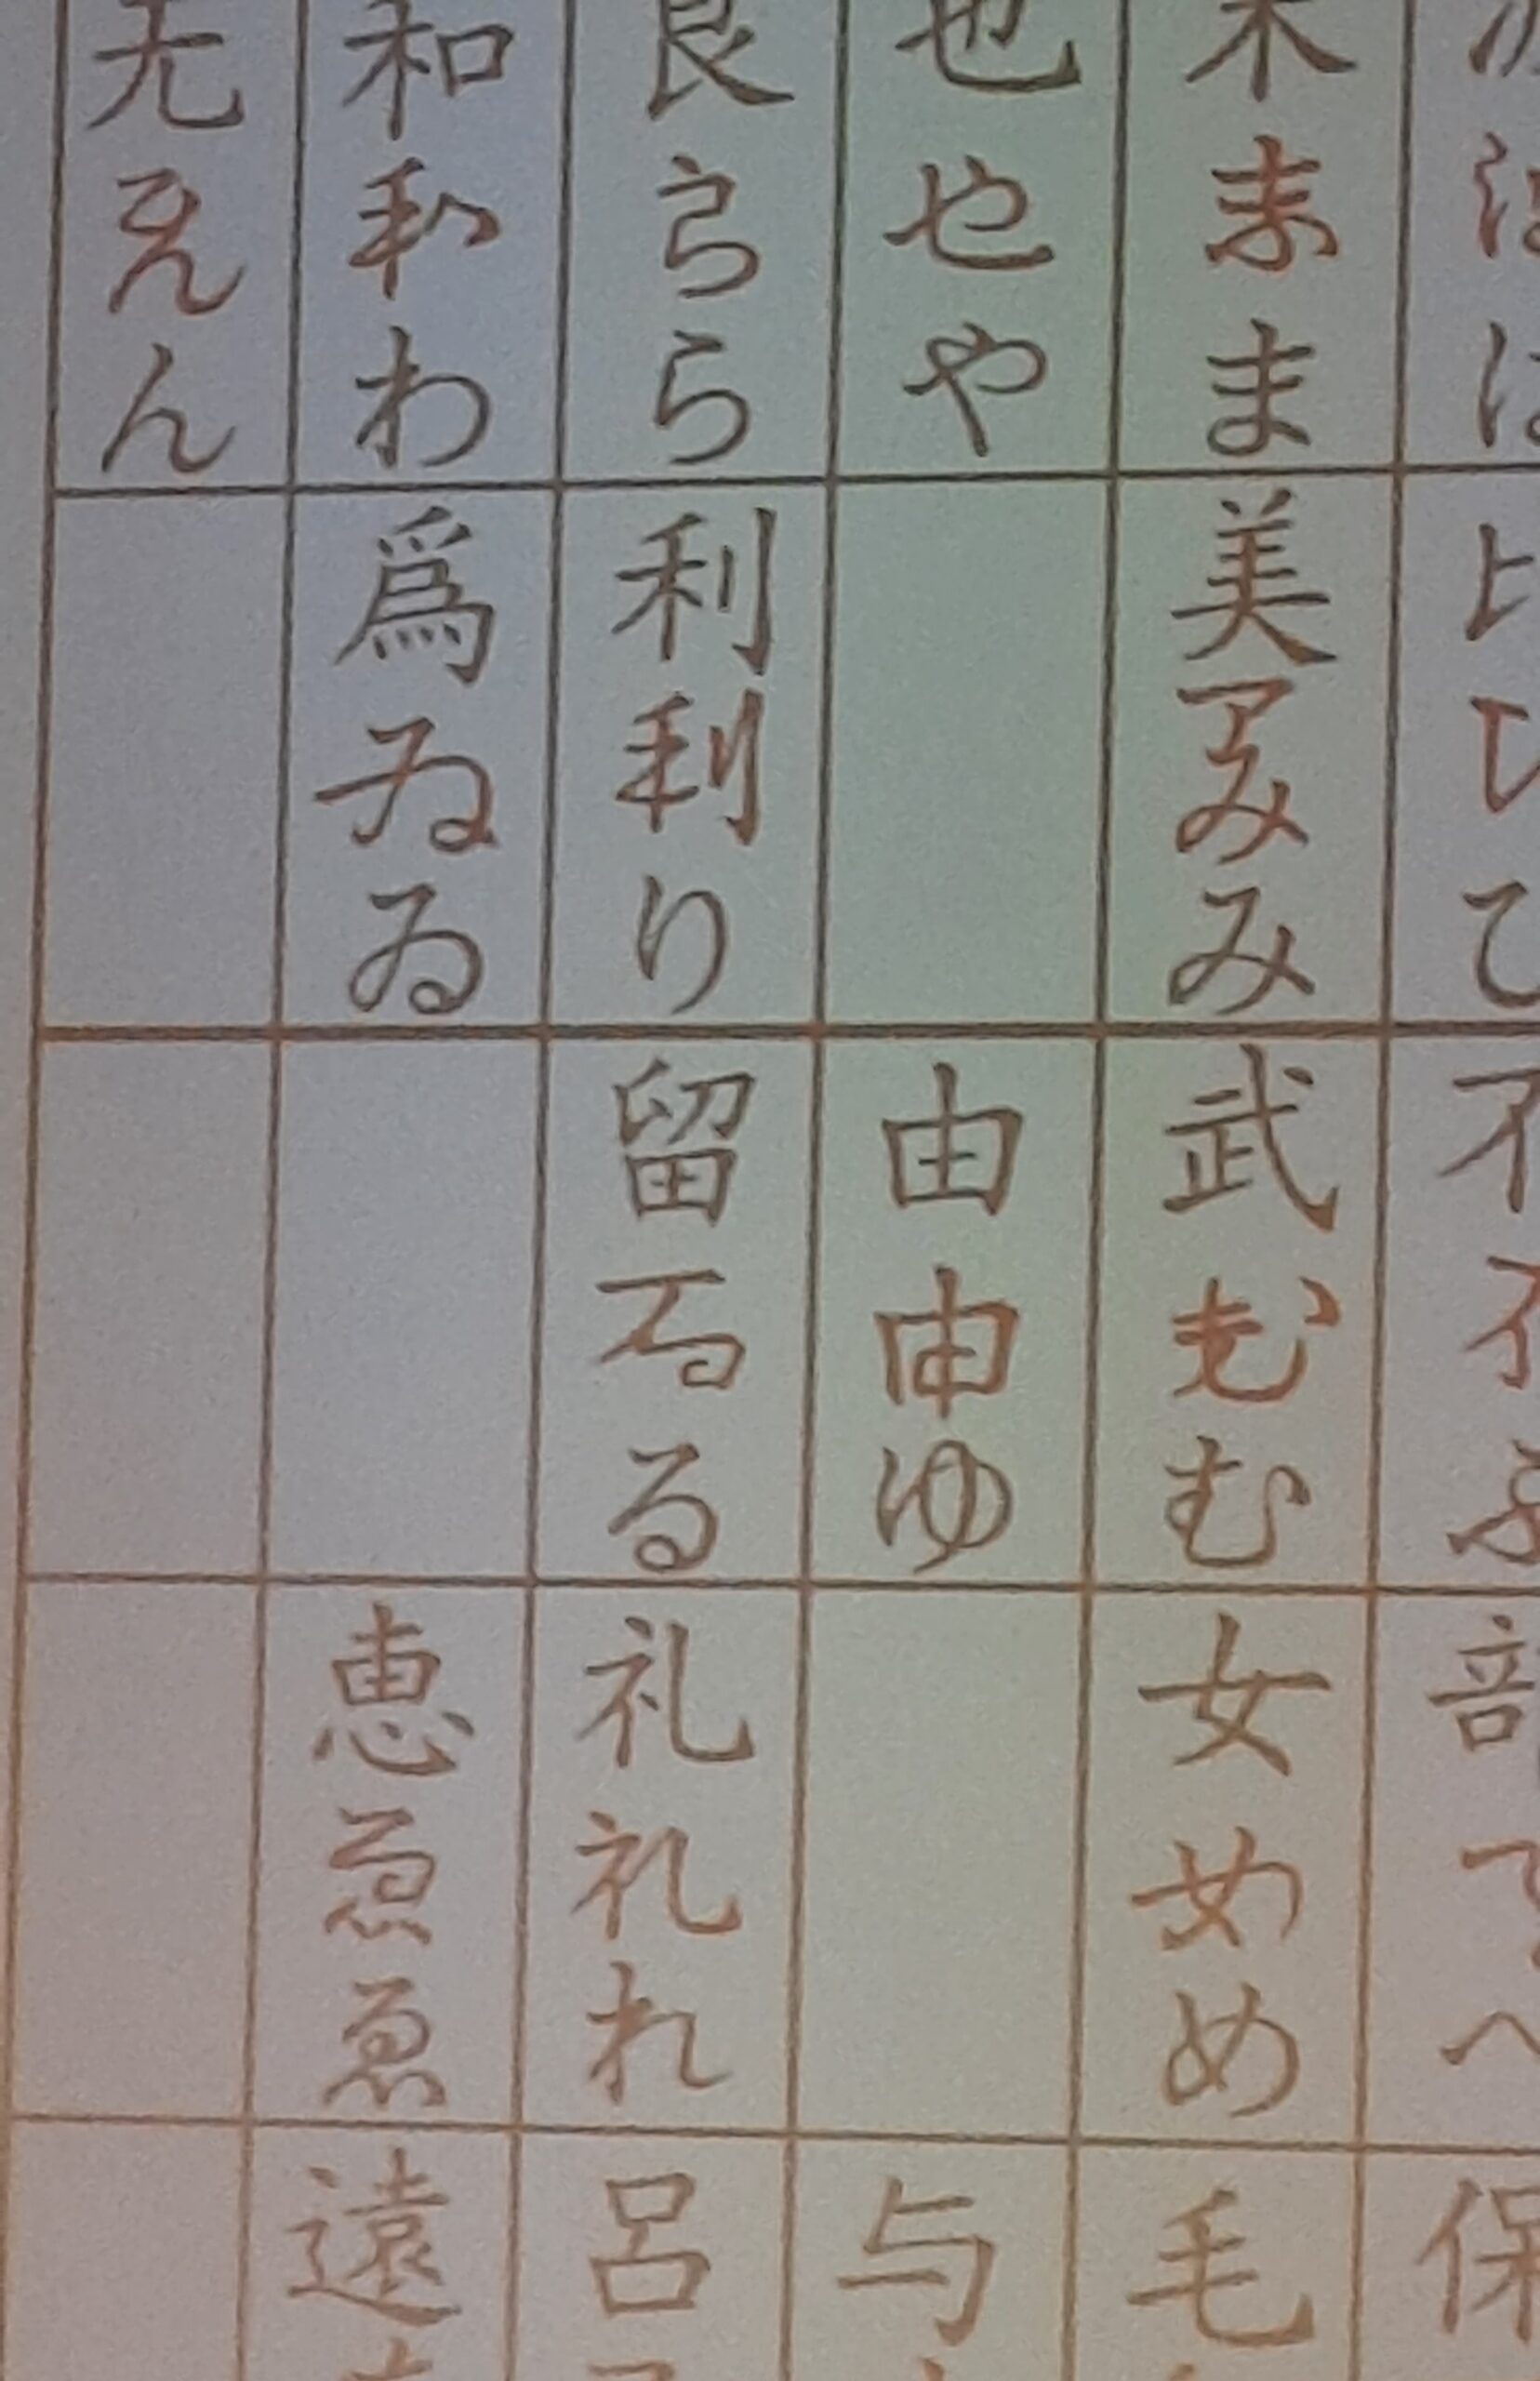 末 ま ま 美 み み 武 む む 女 め め 毛
也 や や 由 由 ゆ 与
良 ら ら 利 利 り 留 る る 礼 礼 れ 呂
和 和 わ 爲 ゐ ゐ 恵 ゑ ゑ 遠
无 ん ん